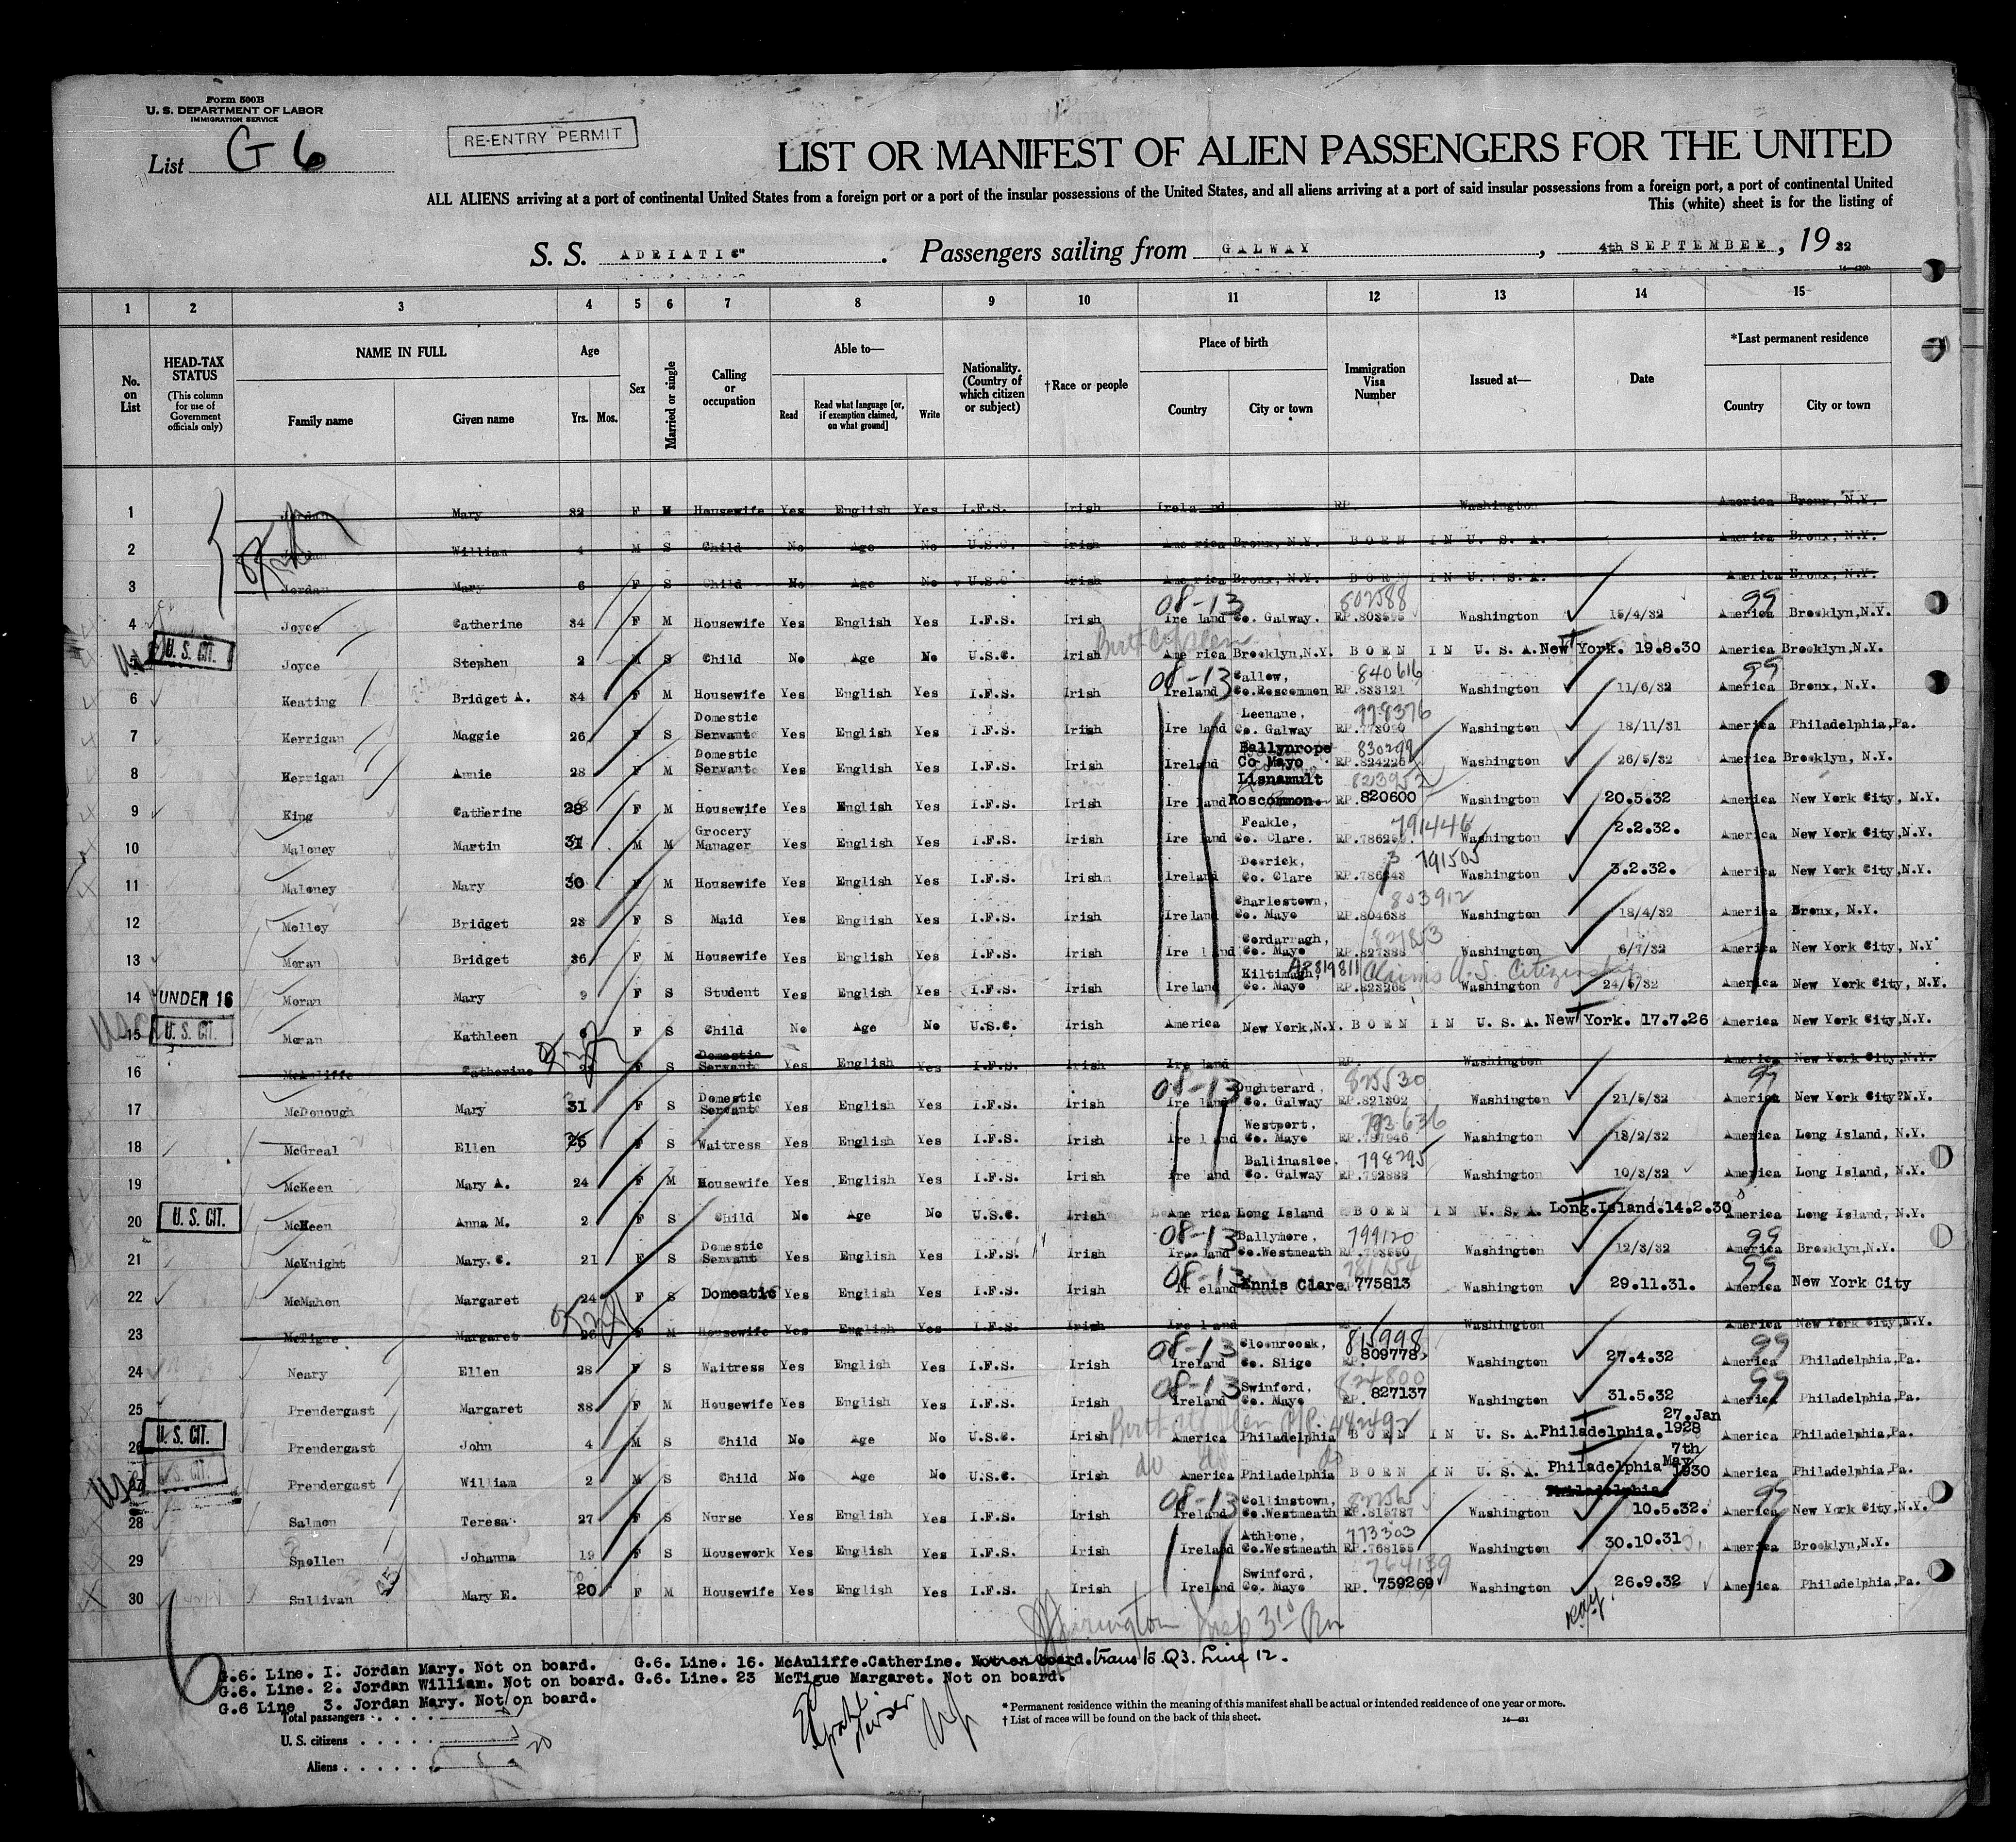 Form 500B
U. S. DEPARTMENT OF LABOR
IMMIGRATION SERVICE
List G 6
RE-ENTRY PERMIT
LIST OR MANIFEST OF ALIEN PASSENGERS FOR THE UNITED
ALL ALIENS arriving at a port of continental United States from a foreign port or a port of the insular possessions of the United States, and all aliens arriving at a port of said insular possessions from a foreign port, a port of continental United
This (white) sheet is for the listing of
S. S. ADRIATIC" . Passengers sailing from GALWAY , 4th SEPTEMBER , 19 32
1 2 3 4 5 6 7 8 9 10 11 12 13 14 15
No. on List
HEAD-TAX STATUS
(This column for use of Government officials only)
NAME IN FULL
Family name Given name
Age
Yrs. Mos.
Sex
Married or single
Calling or occupation
Able to—
Read
Read what language [or, if exemption claimed, on what ground]
Write
Nationality. (Country of which citizen or subject)
†Race or people
Place of birth
Country City or town
Immigration Visa Number
Issued at—
Date
*Last permanent residence
Country City or town
1 Jordan Mary 32 F M Housewife Yes English Yes I.F.S. Irish Ireland RP. Washington America Bronx, N.Y.
2 Jordan William 4 M S Child No Age No U.S.C. Irish America Bronx, N.Y. BORN IN U. S. A. America Bronx, N.Y.
3 Jordan Mary 6 F S Child No Age No U.S.C Irish America Bronx, N.Y. BORN IN U. S. A. America Bronx, N.Y.
08-13 802588 99
4 Joyce Catherine 34 F M Housewife Yes English Yes I.F.S. Irish Ireland Co. Galway. Washington 15/4/32 America Brooklyn, N.Y.
5 U. S. CIT. Joyce Stephen 2 M S Child No Age No U.S.C. Irish America Brooklyn, N.Y. BORN IN U. S. A. New York. 19.8.30 America Brooklyn, N.Y.
08-13 Callow, 840616 99
6 Keating Bridget A. 34 F M Housewife Yes English Yes I.F.S. Irish Ireland Co.Roscommon RP.833121 Washington 11/6/32 America Bronx, N.Y.
Domestic Leenane, 778376
7 Kerrigan Maggie 26 F S Servant Yes English Yes I.F.S. Irish Ireland Co. Galway Washington 18/11/31 America Philadelphia, Pa.
Domestic Ballynrope 830299
8 Kerrigan Annie 28 F M Servant Yes English Yes I.F.S. Irish Ireland Co Mayo RP.824226 Washington 26/5/32 America Brooklyn, N.Y.
Lisnamult 823952
9 King Catherine 28 F M Housewife Yes English Yes I.F.S. Irish Ireland Roscommon. RP.820600 Washington 20.5.32 America New York City, N.Y.
Grocery Feakle, 791446
10 Maloney Martin 31 M M Manager Yes English Yes I.F.S. Irish Ireland Co. Clare. Washington 2.2.32. America New York City, N.Y.
Doorick, 791505
11 Maloney Mary 30 F M Housewife Yes English Yes I.F.S. Irish Ireland Co. Clare Washington 3.2.32. America New York City, N.Y.
Charlestown, 803912
12 Molloy Bridget 23 F S Maid Yes English Yes I.F.S. Irish Ireland Co. Mayo RP.804688 Washington 18/4/32 America Bronx, N.Y.
Cordarragh, 821853
13 Moran Bridget 36 F M Housewife Yes English Yes I.F.S. Irish Ireland Co. Mayo RP.827388 Washington 6/7/32 America New York City, N.Y
Kiltimagh, 819811 Claims U.S. Citizenship
14 UNDER 16 Moran Mary 9 F S Student Yes English Yes I.F.S. Irish Ireland Co. Mayo RP.823268 Washington 24/5/32 America New York City, N.Y.
15 U. S. CIT. Moran Kathleen 6 F S Child No Age No U.S.C. Irish America New York, N.Y. BORN IN U. S. A. New York. 17.7.26 America New York City, N.Y.
Domestic
16 McAuliffe Catherine F S Servant Yes English Yes I.F.S. Irish Ireland RP. Washington America New York City, N.Y.
Domestic 08-13 Oughterard, 825530 99
17 McDonough Mary 31 F S Servant Yes English Yes I.F.S. Irish Ireland Co. Galway RP.821302 Washington 21/5/32 America New York City?N.Y.
Westport, 793636
18 McGreal Ellen 25 F S Waitress Yes English Yes I.F.S. Irish Ireland Co. Mayo RP.787946 Washington 18/2/32 America Long Island, N.Y.
Ballinasloe. 798295
19 McKeen Mary A. 24 F M Housewife Yes English Yes I.F.S. Irish Ireland Co. Galway RP.792888 Washington 10/3/32 America Long Island, N.Y.
20 U. S. CIT. McKeen Anna M. 2 F S Child No Age No U.S.C. Irish America Long Island BORN IN U. S. A. Long Island.14.2.30 America Long Island, N.Y.
Domestic 08-13 Ballymore, 799120 99
21 McKnight Mary C. 21 F S Servant Yes English Yes I.F.S. Irish Ireland Co.Westmeath Washington 12/3/32 America Brooklyn, N.Y.
08-13 99
22 McMahon Margaret 24 F S Domestic Yes English Yes I.F.S. Irish Ireland Ennis Clare 775813 Washington 29.11.31. America New York City
23 McTigue Margaret 26 F M Housewife Yes English Yes I.F.S. Irish Ireland Washington America New York City, N.Y.
08-13 Cloonroosk, 815998 99
24 Neary Ellen 28 F S Waitress Yes English Yes I.F.S. Irish Ireland Co. Sligo RP. 809778 Washington 27.4.32 America Philadelphia, Pa.
08-13 Swinford, 824800 99
25 Prendergast Margaret 38 F M Housewife Yes English Yes I.F.S. Irish Ireland Co. Mayo RP. 827137 Washington 31.5.32 America Philadelphia, Pa.
27.Jan
26 U. S. CIT. Prendergast John 4 M S Child No Age No U.S.C. Irish America Philadelphia BORN IN U. S. A. Philadelphia. 1928 America Philadelphia, Pa.
do do do 7th May
27 U. S. CIT. Prendergast William 2 M S Child No Age No U.S.C. Irish America Philadelphia BORN IN U. S. A. Philadelphia 1930 America Philadelphia, Pa.
08-13 Collinstown, Philadelphia 99
28 Salmon Teresa 27 F S Nurse Yes English Yes I.F.S. Irish Ireland Co.Westmeath RP.815787 Washington 10.5.32. America New York City, N.Y.
Athlone, 773303
29 Spollen Johanna 19 F S Housework Yes English Yes I.F.S. Irish Ireland Co.Westmeath RP.768155 Washington 30.10.31 America Brooklyn, N.Y.
Swinford, 764139
30 Sullivan Mary E. 20 F M Housewife Yes English Yes I.F.S. Irish Ireland Co. Mayo RP. 759269 Washington 26.9.32 America Philadelphia, Pa.
G.6. Line. I. Jordan Mary. Not on board. G.6. Line. 16. McAuliffe.Catherine. Not on board. trans to Q3. Line 12.
G.6. Line. 2. Jordan William. Not on board. G.6. Line. 23 McTigue Margaret. Not on board.
G.6 Line 3. Jordan Mary. Not on board.
Total passengers
U. S. citizens
Aliens
* Permanent residence within the meaning of this manifest shall be actual or intended residence of one year or more.
† List of races will be found on the back of this sheet.
14—431